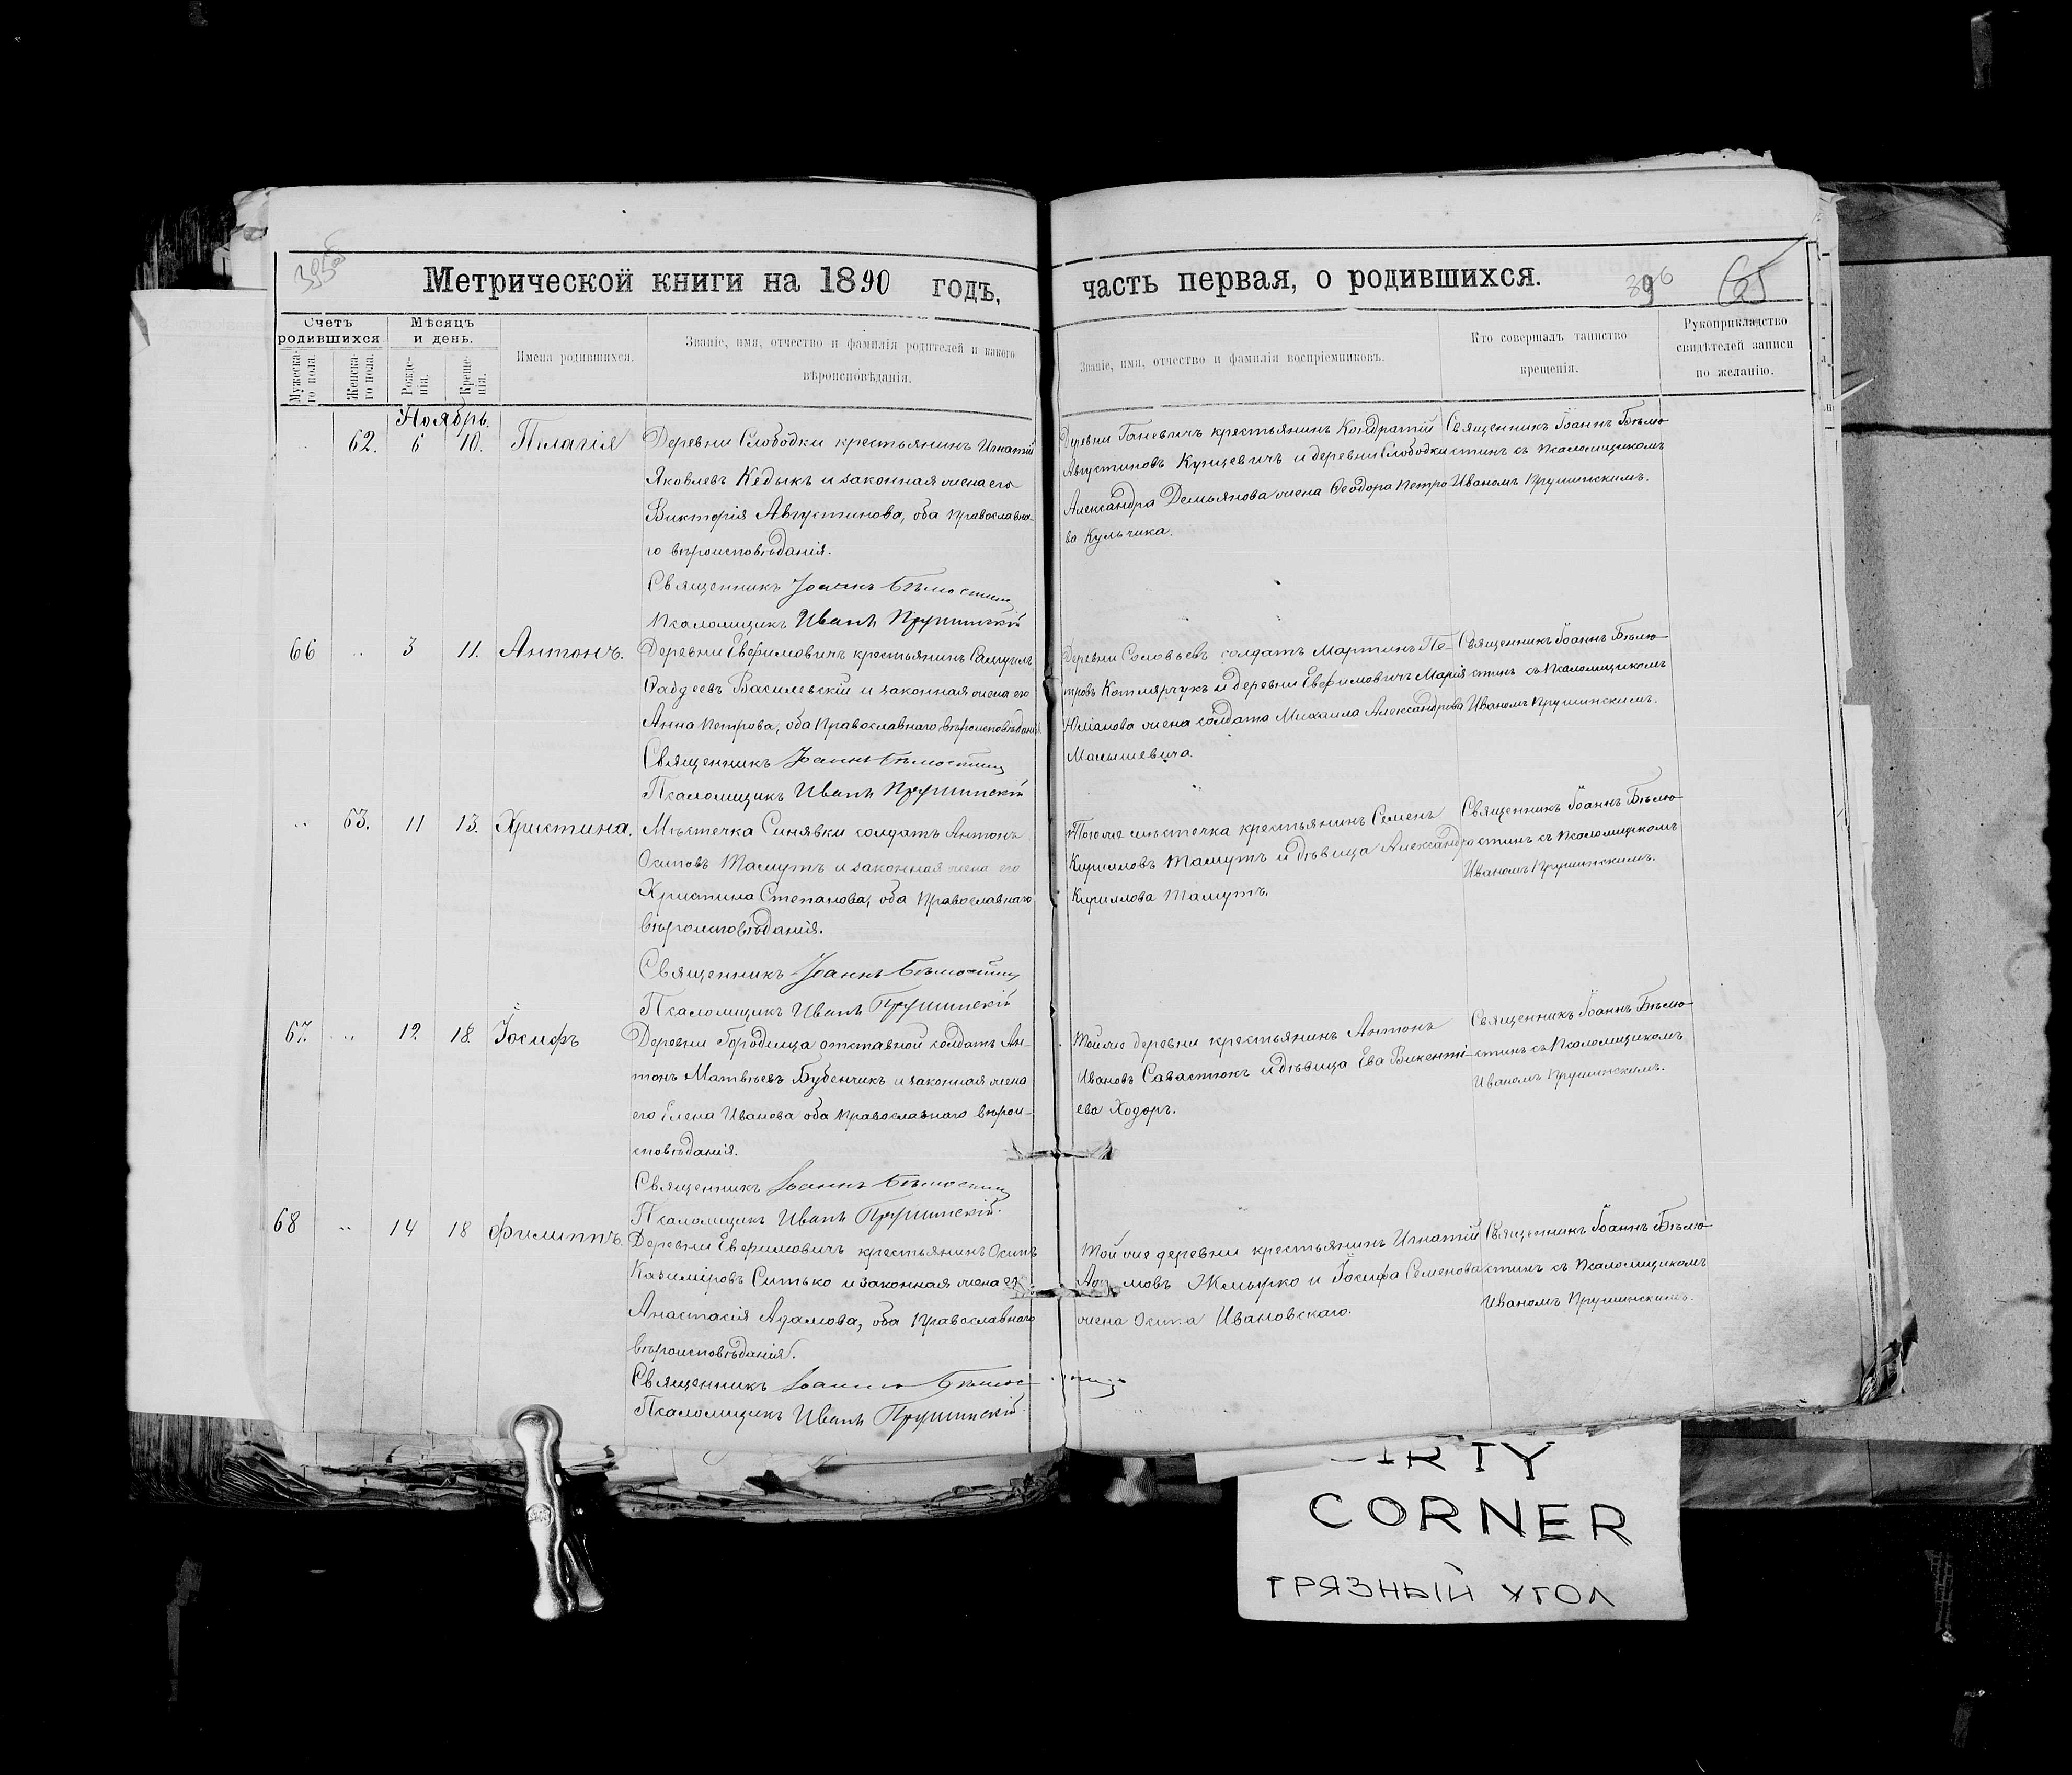 Метрической книги на 1890 годъ,
часть первая, о родившихся.
396
65
Счетъ родившихся
Мужеска-го пола.
Женска-го пола.
Мѣсяцъ и день.
Рожде-нія.
Креще-нія.
Имена родившихся.
Званіе, имя, отчество и фамилія родителей и какого
вѣроисповѣданія.
Званіе, имя, отчество и фамилія воспріемниковъ.
Кто совершалъ таинство
крещенія.
Рукоприкладство
свидѣтелей записи
по желанію.
Ноябрь.
62. 6 10. Пелагія
Деревни Слободки крестьянинъ Игнатій
Яковлевъ Кедыкъ и законная жена его
Викторія Августинова, оба православна-
го вѣроисповѣданія.
Священникъ Іоаннъ Бѣлюстинъ
Псаломщикъ Иванъ Прушинскій
Деревни Ганевичъ крестьянинъ Кондратій
Августиновъ Кунцевичъ и деревни Слободки
Александра Демьянова жена Ѳеодора Петро
ва Кульчика.
Священникъ Іоаннъ Бѣлю-
стинъ съ псаломщикомъ
Иваномъ Прушинскимъ.
66 3 11. Антонъ.
Деревни Евфимовичъ крестьянинъ Самуилъ
Ѳаддеевъ Василевскій и законная жена его
Анна Петрова, оба православнаго вѣроисповѣданія.
Священникъ Іоаннъ Бѣлюстинъ
Псаломщикъ Иванъ Прушинскій
Деревни Соловьевъ солдатъ Мартинъ Пе-
тровъ Котлярчукъ и деревни Евфимовичъ Марія
Юліанова жена солдата Михаила Александрова
Малышевича.
Священникъ Іоаннъ Бѣлю-
стинъ съ псаломщикомъ
Иваномъ Прушинскимъ.
63. 11 13. Христина.
Мѣстечка Синявки солдатъ Антонъ
Осиповъ Мамутъ и законная жена его
Христина Степанова, оба православнаго
вѣроисповѣданія.
Священникъ Іоаннъ Бѣлюстинъ
Псаломщикъ Иванъ Прушинскій
Того же мѣстечка крестьянинъ Семенъ
Кирилловъ Мамутъ и дѣвица Александра
Кириллова Мамутъ.
Священникъ Іоаннъ Бѣлю-
стинъ съ псаломщикомъ
Иваномъ Прушинскимъ.
67. 12 18. Іосифъ
Деревни Городища отставной солдатъ Ан-
тонъ Матвѣевъ Бубенчикъ и законная жена
его Елена Иванова оба православнаго вѣрои-
сповѣданія.
Священникъ Іоаннъ Бѣлюстинъ
Псаломщикъ Иванъ Прушинскій.
Той же деревни крестьянинъ Антонъ
Ивановъ Савастюкъ и дѣвица Ева Викенті-
ева Ходоръ.
Священникъ Іоаннъ Бѣлю-
стинъ съ псаломщикомъ
Иваномъ Прушинскимъ.
68 14 18 Филиппъ.
Деревни Евфимовичъ крестьянинъ Осипъ
Казиміровъ Ситько и законная жена его
Анастасія Адамова, оба православнаго
вѣроисповѣданія.
Священникъ Іоаннъ Бѣлюстинъ
Псаломщикъ Иванъ Прушинскій.
Той же деревни крестьянинъ Игнатій
Жемырко и Іосифа Семенова
жена Осипа Ивановскаго.
Священникъ Іоаннъ Бѣлю-
стинъ съ псаломщикомъ
Иваномъ Прушинскимъ.
CORNER
ГРЯЗНЫЙ УГОЛ